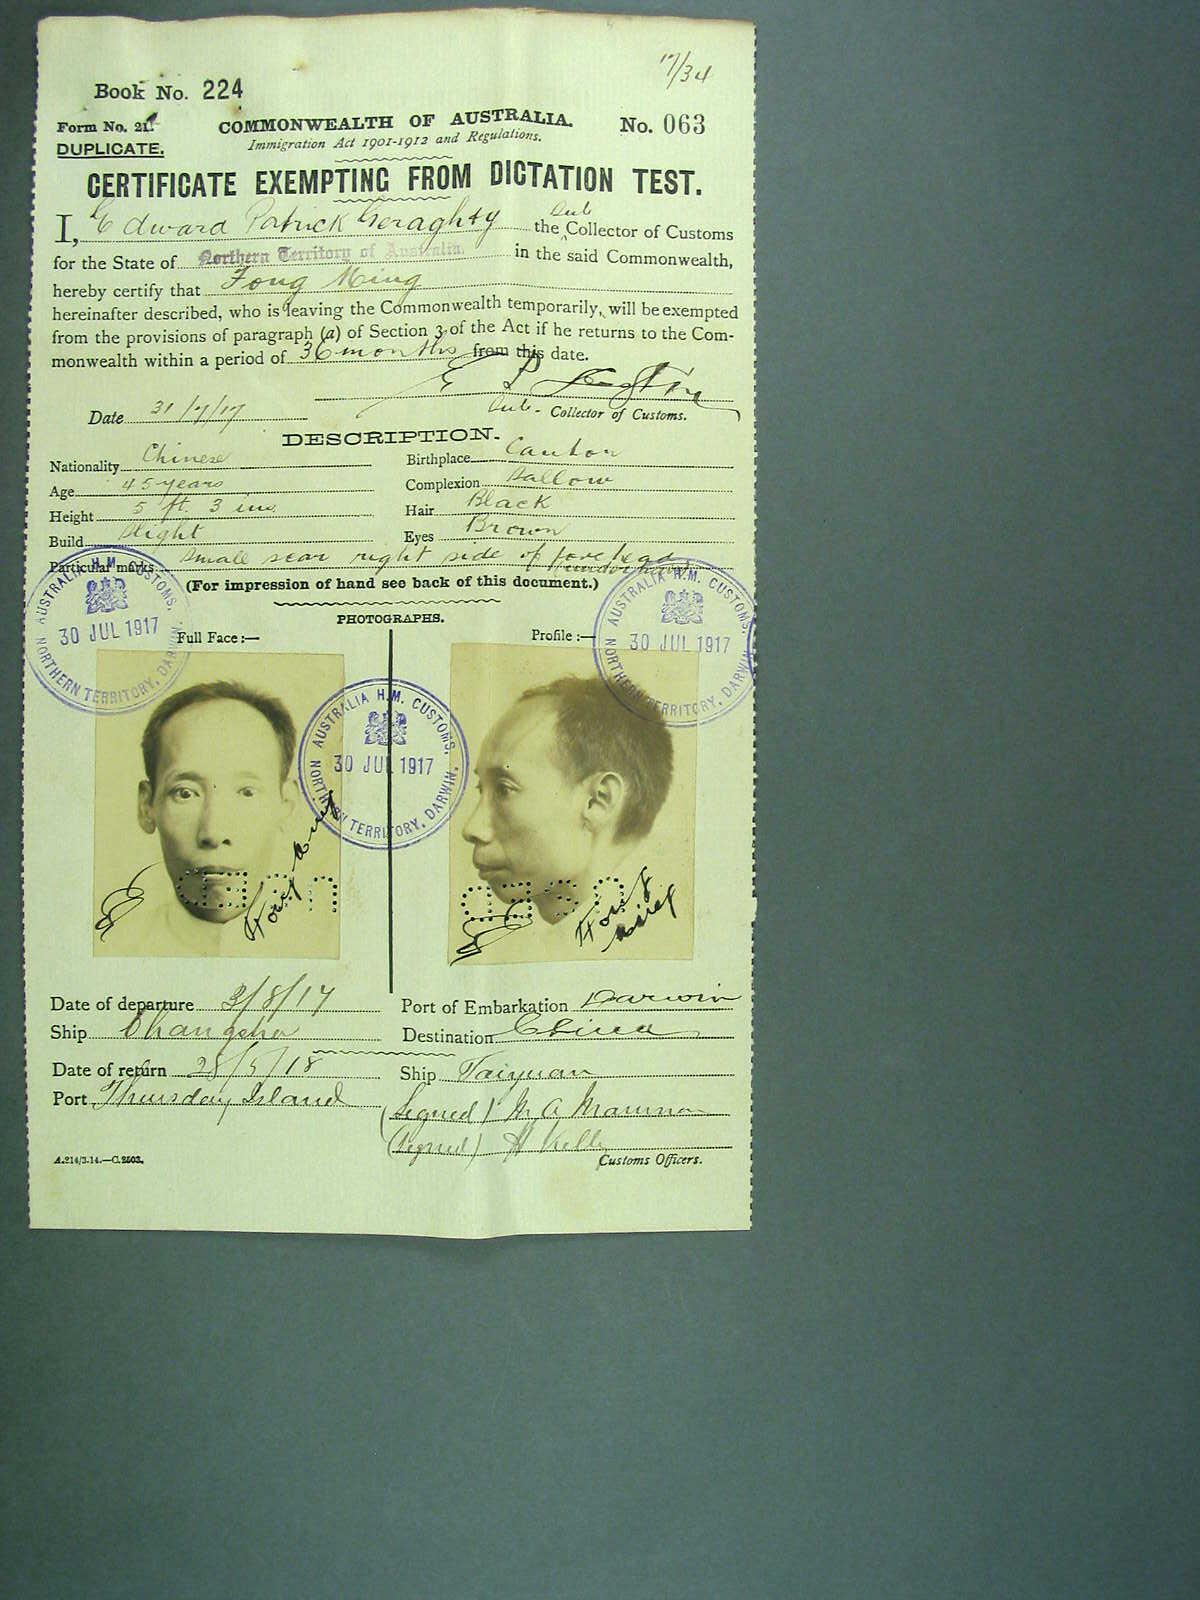 17/34
Book No. 224
Form No. 21.
COMMONWEALTH OF AUSTRALIA.
No. 063
DUPLICATE.
Immigration Act 1901-1912 and Regulations.
CERTIFICATE EXEMPTING FROM DICTATION TEST.
I, Edward Patrick Geraghty the Sub Collector of Customs
for the State of Northern Territory of Australia. in the said Commonwealth,
hereby certify that Fong Ming
hereinafter described, who is leaving the Commonwealth temporarily, will be exempted
from the provisions of paragraph (a) of Section 3 of the Act if he returns to the Com-
monwealth within a period of 36 months from this date.
Date 31/7/17
Sub- Collector of Customs.
DESCRIPTION.
Nationality Chinese
Birthplace Canton
Age 45 years
Complexion Sallow
Height 5 ft. 3 ins
Hair Black
Build Slight
Eyes Brown
Particular marks small scar right side of forehead
(For impression of hand see back of this document.)
PHOTOGRAPHS.
Full Face:—
Profile:—
AUSTRALIA H.M. CUSTOMS, NORTHERN TERRITORY, DARWIN.
30 JUL 1917
AUSTRALIA H.M. CUSTOMS, NORTHERN TERRITORY, DARWIN.
30 JUL 1917
AUSTRALIA H.M. CUSTOMS, NORTHERN TERRITORY, DARWIN.
30 JUL 1917
Fong Ming
Fong Ming
Date of departure 3/8/17
Port of Embarkation Darwin
Ship Changsha
Destination China
Date of return 28/5/18
Ship Taiyuan
Port Thursday Island
(Signed)
(Signed) H Kelly
A.214/3.14.—C.2503.
Customs Officers.